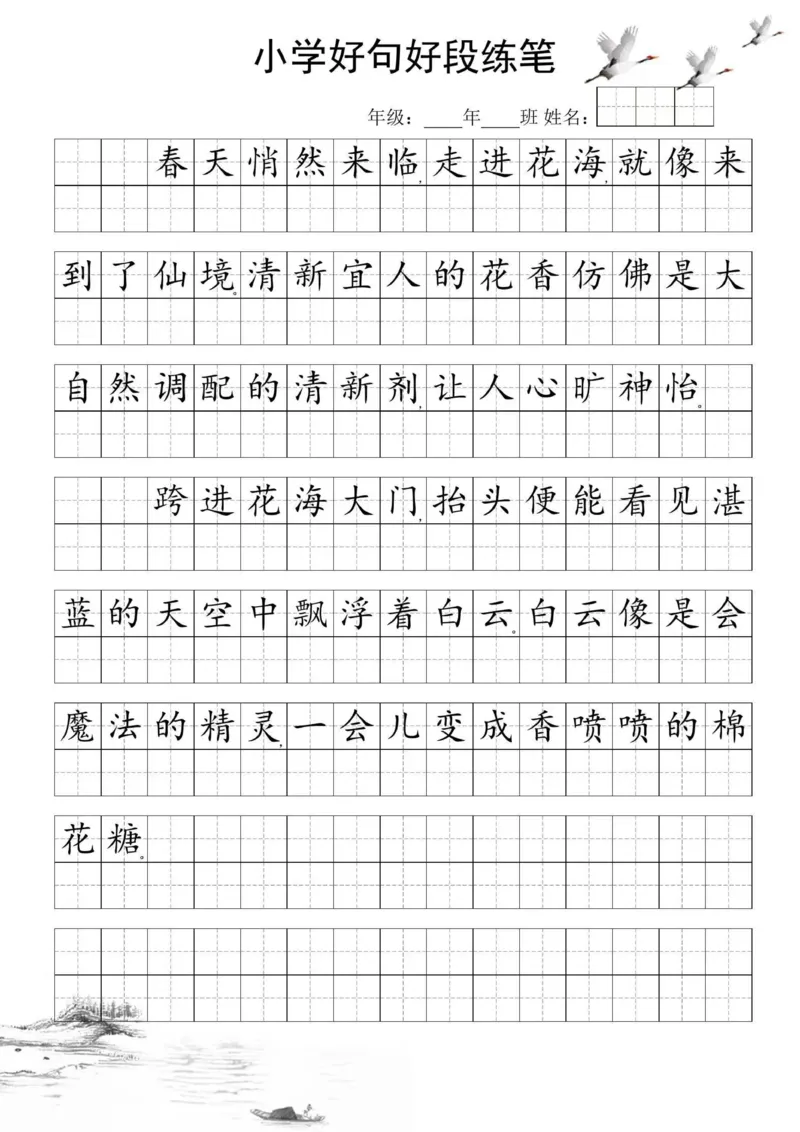 小学好句好段练笔
年级：____年____班 姓名：
春天悄然来临,走进花海,就像来
到了仙境。清新宜人的花香仿佛是大
自然调配的清新剂,让人心旷神怡。
跨进花海大门,抬头便能看见湛
蓝的天空中飘浮着白云。白云像是会
魔法的精灵,一会儿变成香喷喷的棉
花糖。